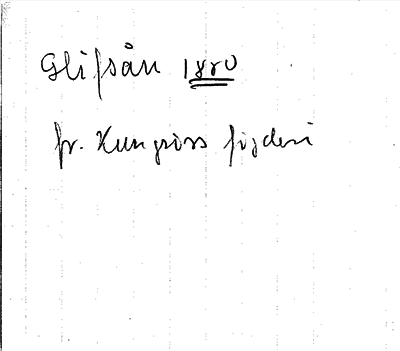 Glifsån 1880
fr. Kungsörs fögderi